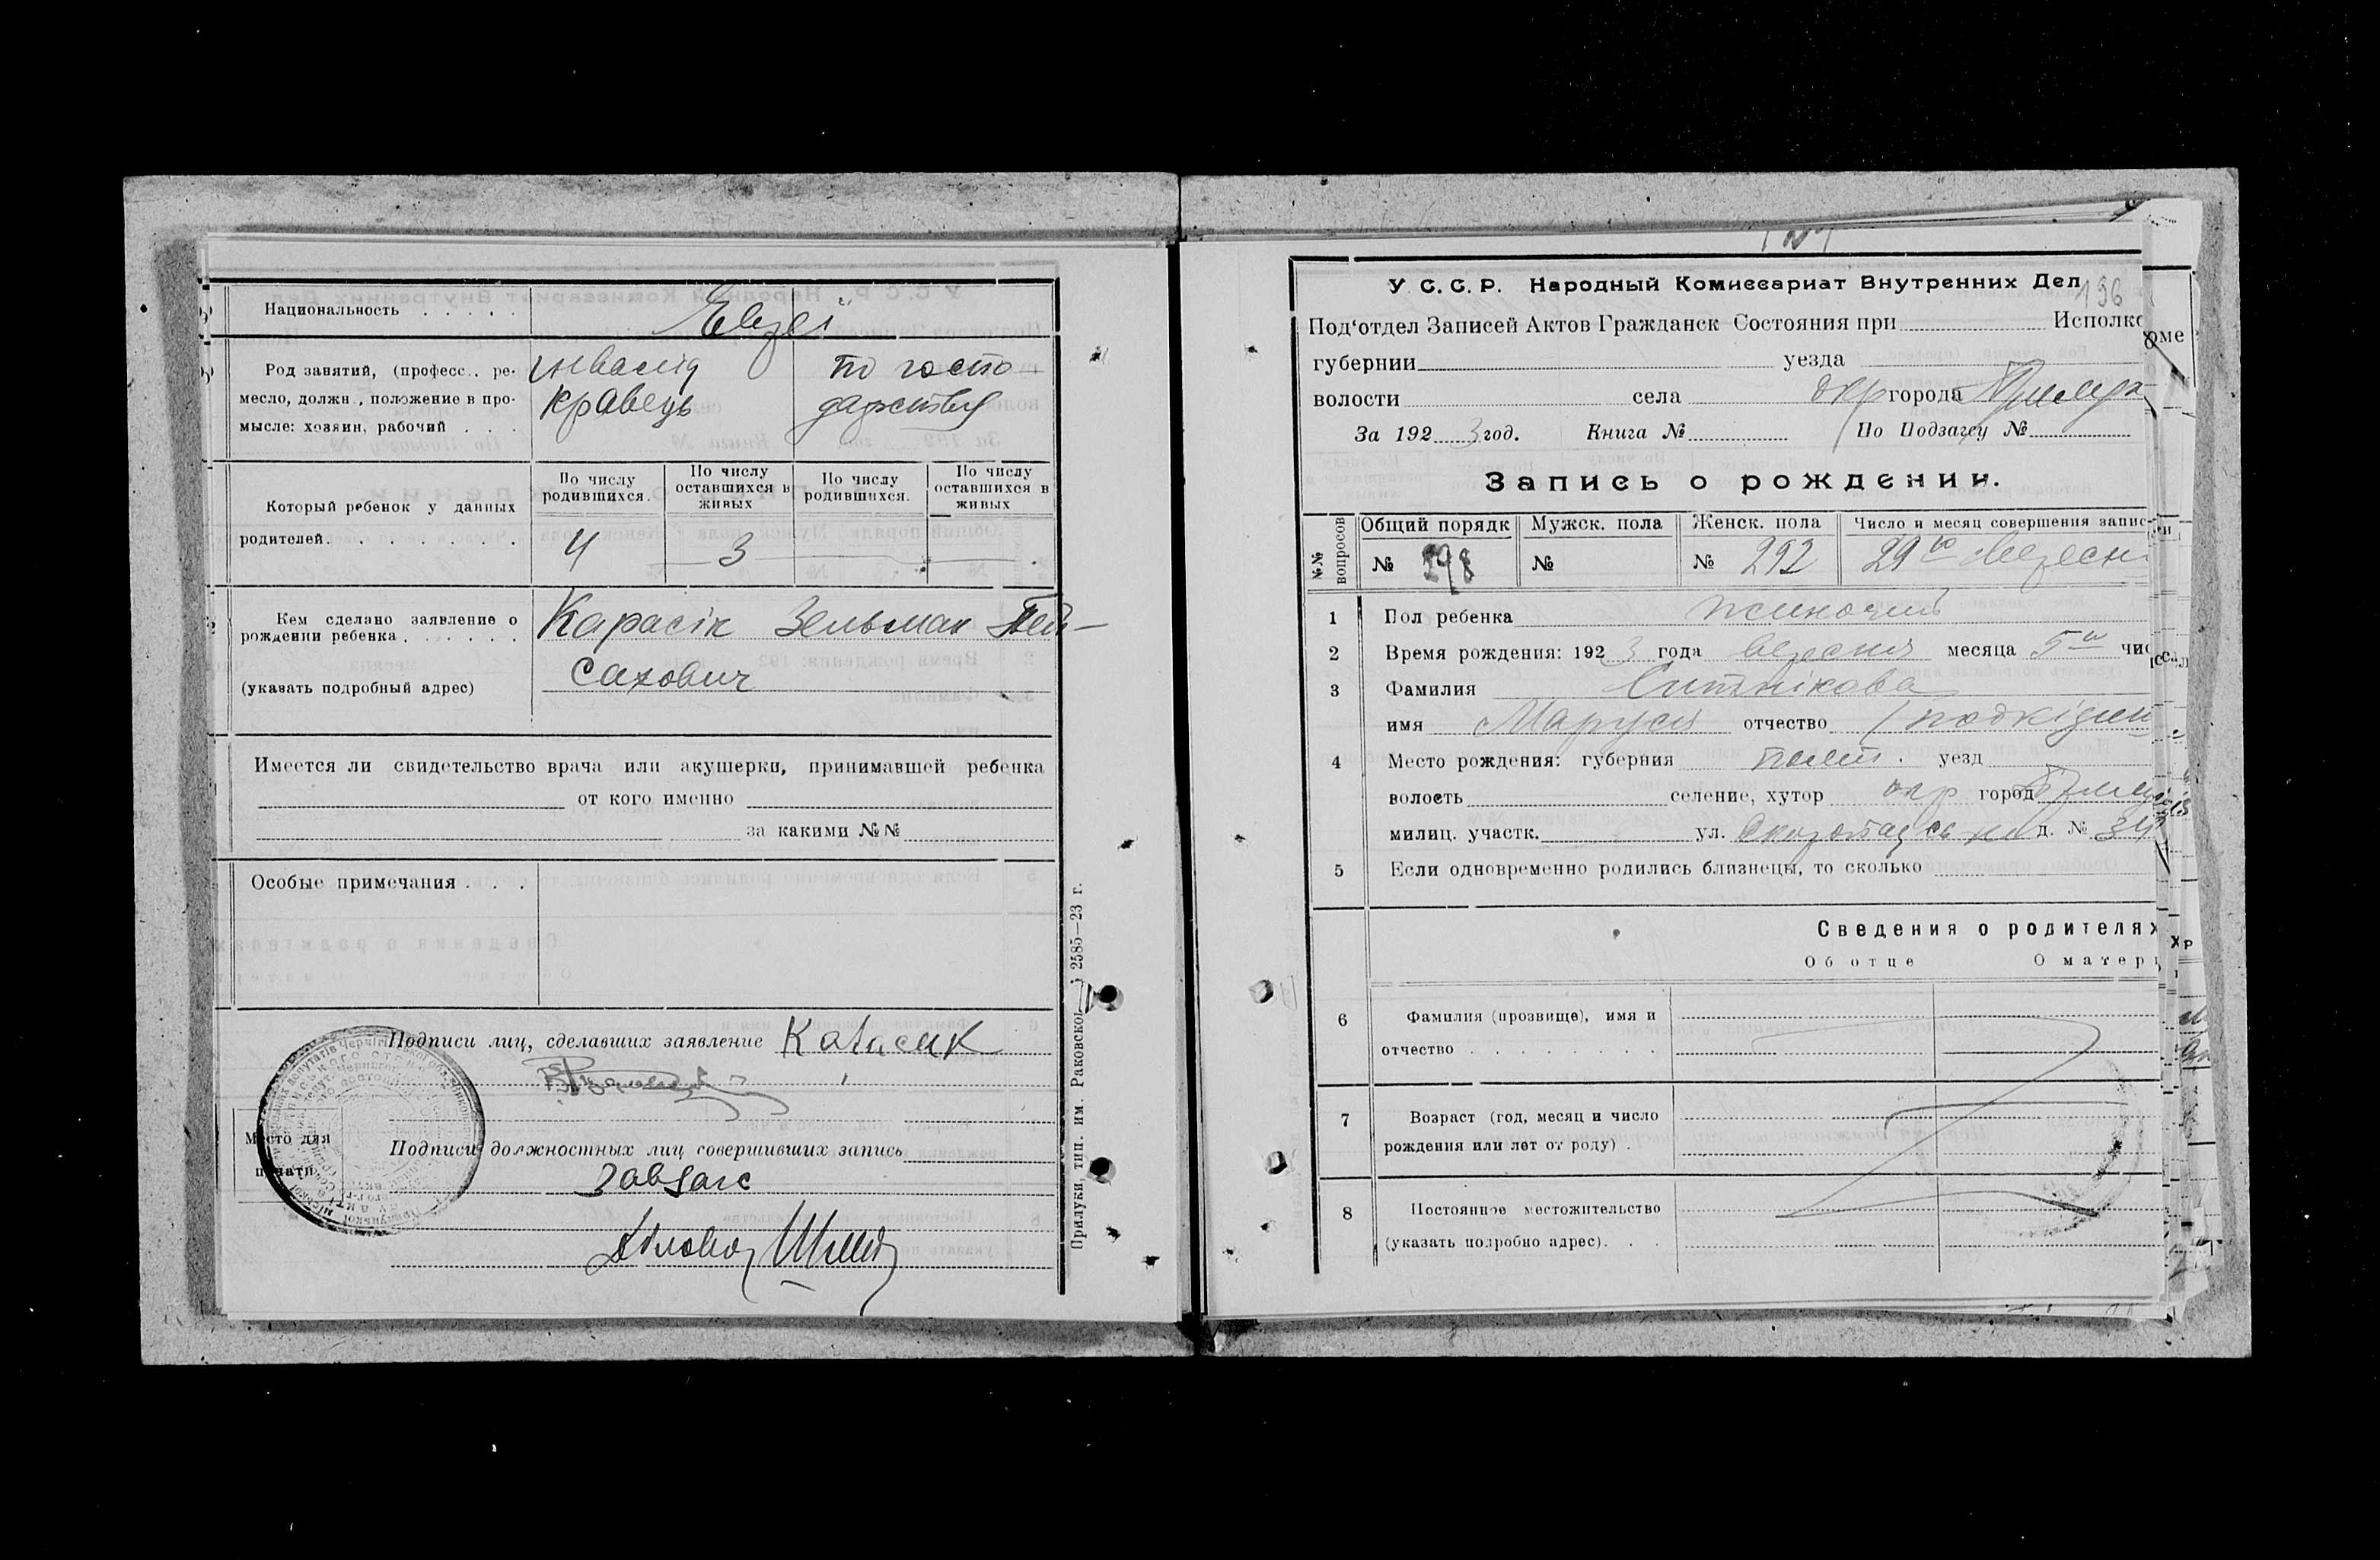 Национальность . . . . .
Евреї
Род занятий, (професс., ре-
месло, должн., положение в про-
мысле: хозяин, рабочий . . .
інвалід
кравець
по госпо-
дарству
Который ребенок у данных
родителей. . . . . . . .
По числу
родившихся.
По числу
оставшихся в
живых
По числу
родившихся.
По числу
оставшихся в
живых
4 3
Кем сделано заявление о
рождении ребенка . . . . . .
(указать подробный адрес)
Карасік Зельман Пей-
сахович
Имеется ли свидетельство врача или акушерки, принимавшей ребенка
от кого именно
за какими №№
Особые примечания . . .
Подписи лиц, сделавших заявление Карасик
Место для
печати
Подписи должностных лиц совершивших запись
Завзагс
Діловод
Прилуки, тип. им. Раковской 2585—23 г.
У С. С. Р. Народный Комиссариат Внутренних Дел
196
Под'отдел Записей Актов Гражданск Состояния при Исполко
губернии уезда
волости села окр города Прилук
За 192 3 год. Книга № По Подзагсу №
Запись о рождении.
№№ вопросов
Общий порядк
Мужск. пола
Женск. пола
Число и месяц совершения записи
№ 298
№
№ 292
29го Вересн
1 Пол ребенка жіночий
2 Время рождения: 192 3 года вересня месяца 5го чис
3 Фамилия Ситнікова
имя Маруся отчество (подкідиш
4 Место рождения: губерния полт. уезд
волость селение, хутор окр город Прилу
милиц. участк. ул. Скоропадськ д. № 34
5 Если одновременно родились близнецы, то сколько
Сведения о родителях
Об отце О матери
6 Фамилия (прозвище), имя и
отчество . . . . . . . .
7 Возраст (год, месяц и число
рождения или лет от роду) .
8 Постоянное местожительство
(указать подробно адрес). . .